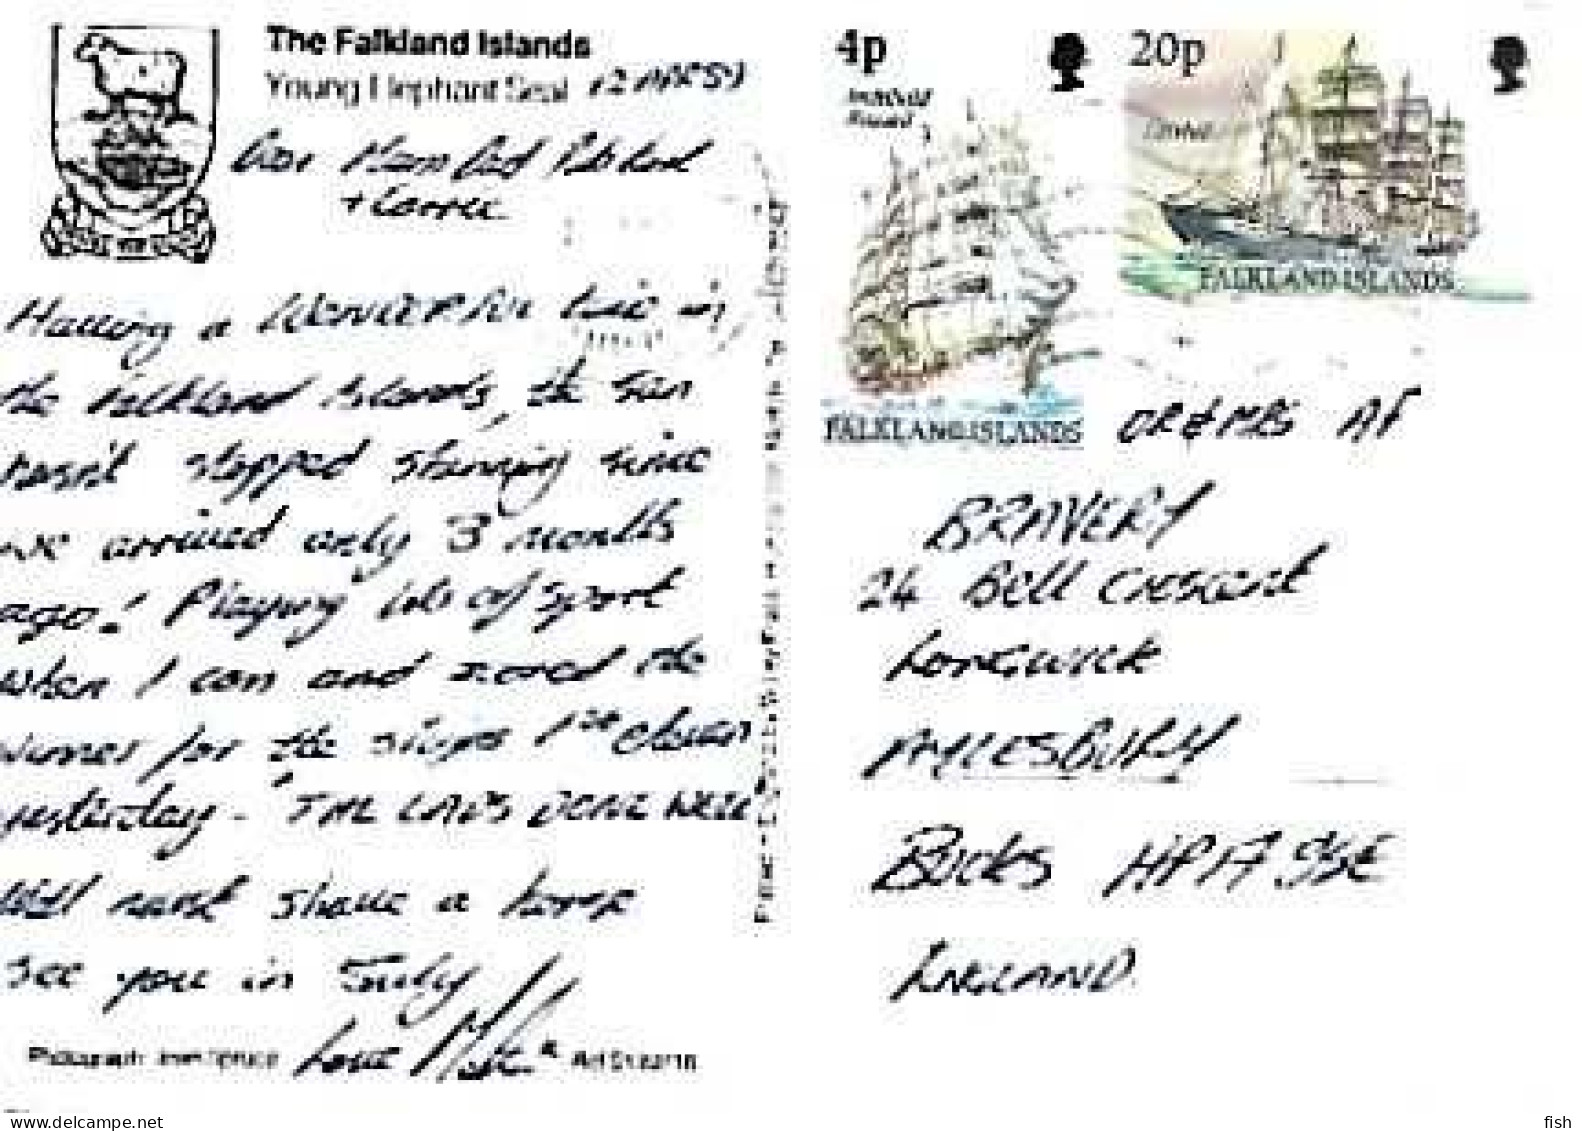 The Falkland Islands
Young Elephant Seal
Dear Mam Dad
+ Carrie
Having a WONDERFUL time in
the Falkland Islands, the sun
hasn't stopped shining since
we arrived only 3 months
ago! Playing lots of sport
when I can and scored the
winner for the ships 1st eleven
yesterday - 'THE LADS DONE WELL
Well must shave a horse
See you in July
Love
4p
FALKLAND ISLANDS
20p
FALKLAND ISLANDS
DR & MRS AF
BRAVERY
24 Bell Crescent
LONGWICK
AYLESBURY
BUCKS HP17 9SE
ENGLAND.
www.delcampe.net
fish